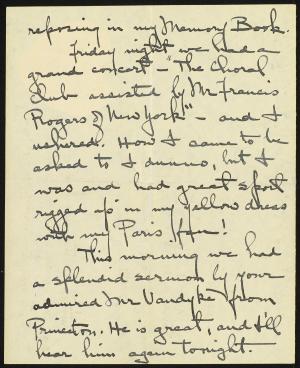 reposing in my Memory Book.
Friday night we had a
grand concert - "The Choral
Club assisted by Mr Francis
Rogers of New York" - and I
ushered. How I came to be
asked to I dunno, but I
was and had great sport
rigged up in my yellow dress
with my Paris fan!
This morning we had
a splendid sermon by your
admired Mr Vandyke from
Princeton. He is great, and I'll
hear him again tonight.